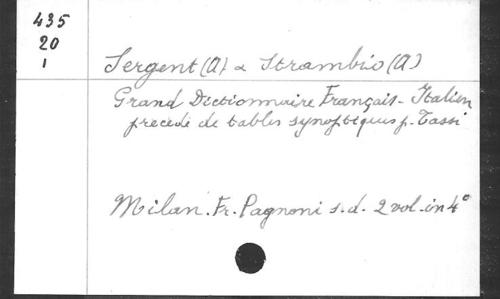 435
20
1
Sergent (A) & Strambio (A)
Grand Dictionnaire Français - Italien
precedé de tables synoptiques p. Tassi
Milan. Fr. Pagnoni s.d. 2 vol. in 4°